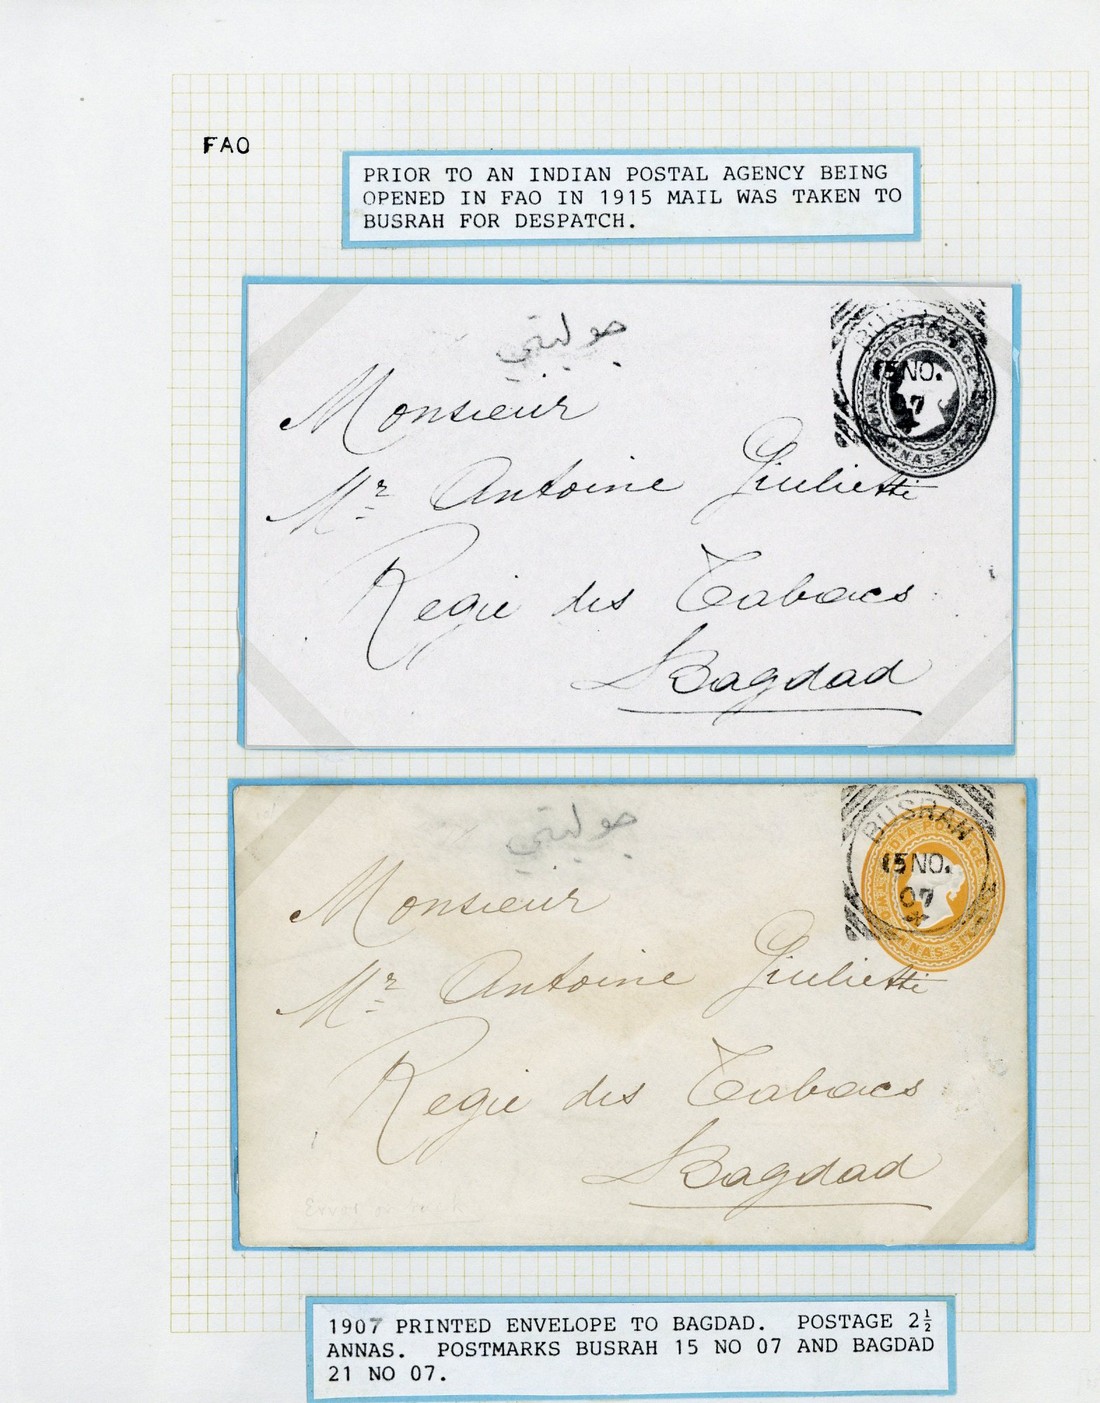 FAO
PRIOR TO AN INDIAN POSTAL AGENCY BEING
OPENED IN FAO IN 1915 MAIL WAS TAKEN TO
BUSRAH FOR DESPATCH.
BUSRAH
15 NO.
07
Monsieur
Mr Antoine Giulietti
Regie des Tabacs
Bagdad
BUSRAH
15 NO.
07
Monsieur
Mr Antoine Giulietti
Regie des Tabacs
Bagdad
1907 PRINTED ENVELOPE TO BAGDAD. POSTAGE 2½
ANNAS. POSTMARKS BUSRAH 15 NO 07 AND BAGDAD
21 NO 07.